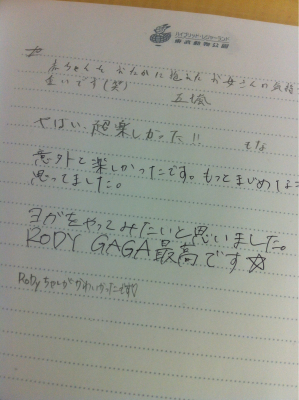 東武動物公園
赤ちゃんを おなかに抱えた お母さんの気持
まいです(笑)
やばい、超楽しかった!! もな
意外と楽しかったです。もっとまじめな
思ってました。
ヨガをやってみたいと思いました。
RODY GAGA最高です☆
RODYちゃんがかわいかったです♡